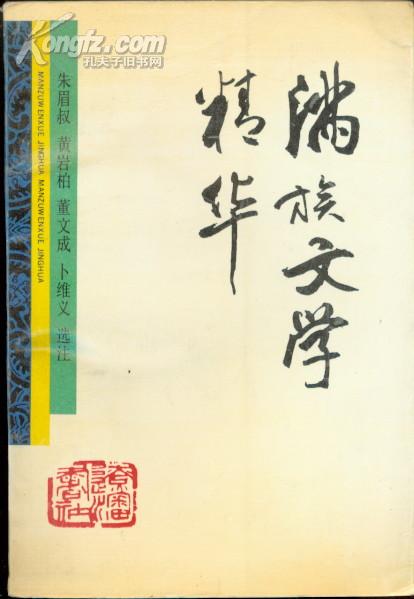 Kongfz.com
孔夫子旧书网
满族文学
精华
朱眉叔 黄岩柏 董文成 卜维义 选注
MANZUWENXUE JINGHUA MANZUWENXUE JINGHUA